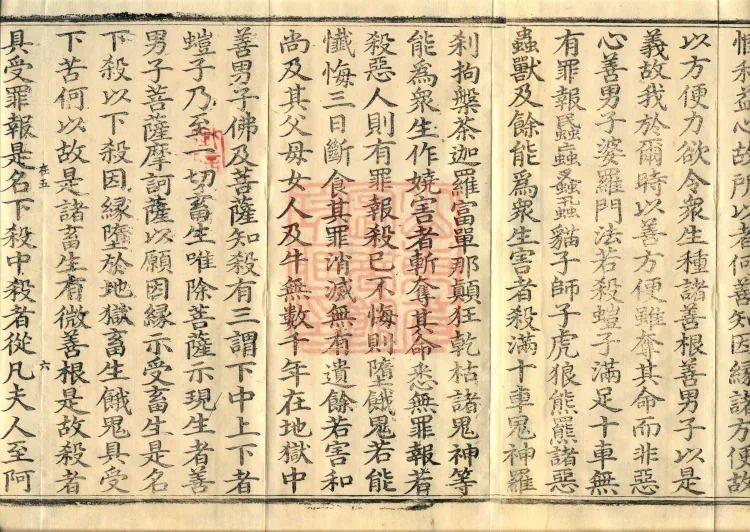 利益心故所以者何善知因緣諸方便故
以方便力欲令衆生種諸善根善男子以是
義故我於爾時以善方便雖奪其命而非惡
心善男子婆羅門法若殺螘子滿足十車無
有罪報蟁蝱蚤蝨貓子師子虎狼熊羆諸惡
蟲獸及餘能爲衆生害者殺滿十車鬼神羅
刹拘槃茶迦羅富單那顛狂乾枯諸鬼神等
能爲衆生作嬈害者斬奪其命悉無罪報若
殺惡人則有罪報殺已不悔則墮餓鬼若能
懺悔三日斷食其罪消滅無有遺餘若害和
尚及其父母女人及牛無數千年在地獄中
善男子佛及菩薩知殺有三謂下中上下者
螘子乃至一切畜生唯除菩薩示現生者善
男子菩薩摩訶薩以願因緣示受畜生是名
下殺以下殺因緣墮於地獄畜生餓鬼具受
在五 六
下苦何以故是諸畜生有微善根是故殺者
具受罪報是名下殺中殺者從凡夫人至阿